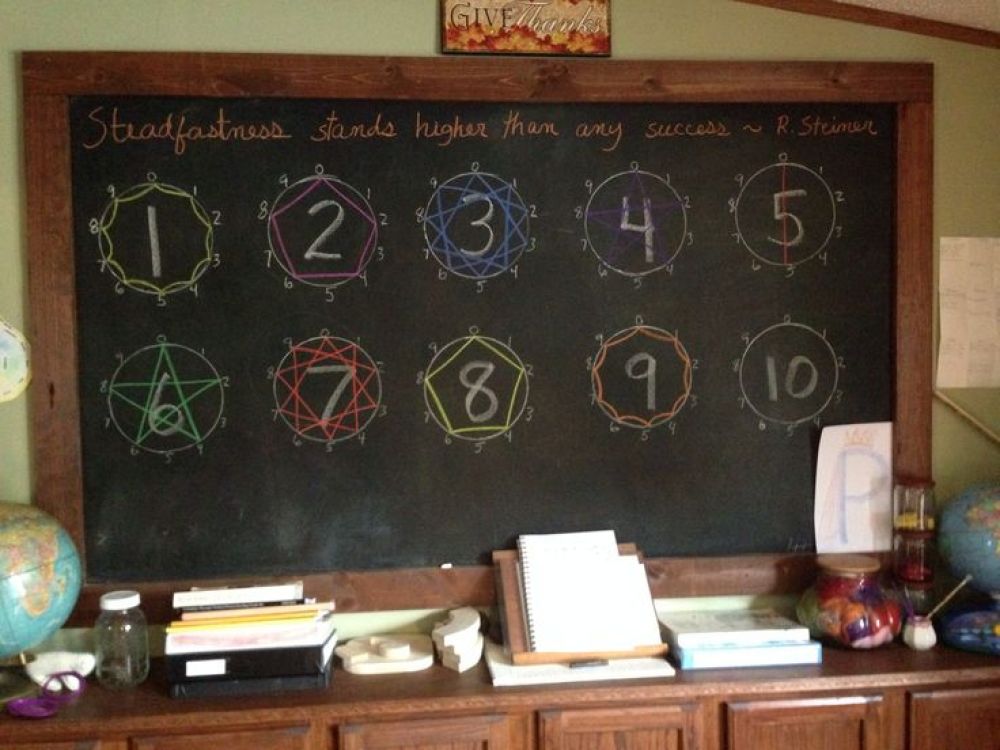 GIVE Thanks
Steadfastness stands higher than any success ~ R. Steiner
0 1 2 3 4 5 6 7 8 9
1
0 1 2 3 4 5 6 7 8 9
2
0 1 2 3 4 5 6 7 8 9
3
0 1 2 3 4 5 6 7 8 9
4
0 1 2 3 5 7 8 9
5
0 1 2 3 4 5 6 7 8 9
6
0 1 2 3 4 5 6 7 8 9
7
0 1 2 3 4 5 6 7 8 9
8
0 1 2 3 4 5 6 7 8 9
9
0 1 2 3 4 5 6 7 8 9
10
P